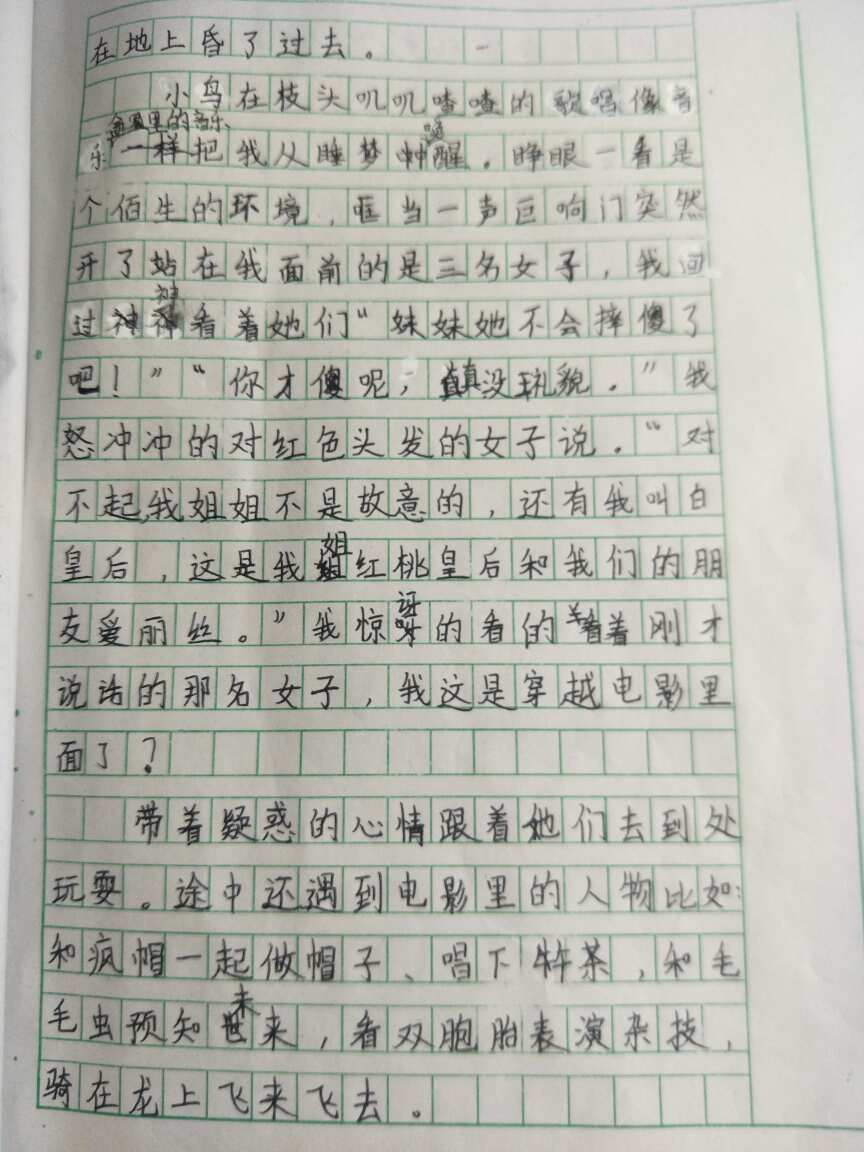 在地上昏了过去。
小鸟在枝头叽叽喳喳的歌唱像音
里的音乐
乐一样把我从睡梦中醒。睁眼一看是
个佰生的环境，哐当一声巨响门突然
开了站在我面前的是三名女子，我回
过神看着她们“妹妹她不会摔傻了
吧！”“你才傻呢，真没礼貌。”我
怒冲冲的对红色头发的女子说。“对
不起，我姐姐不是故意的，还有我叫白
皇后，这是我姐红桃皇后和我们的朋
友爱丽丝。”我惊讶的看的看着刚才
说话的那名女子，我这是穿越电影里
面了？
带着疑惑的心情跟着她们去到处
玩耍。途中还遇到电影里的人物比如：
和疯帽一起做帽子、唱下午茶，和毛
毛虫预知未来，看双胞胎表演杂技，
骑在龙上飞来飞去。